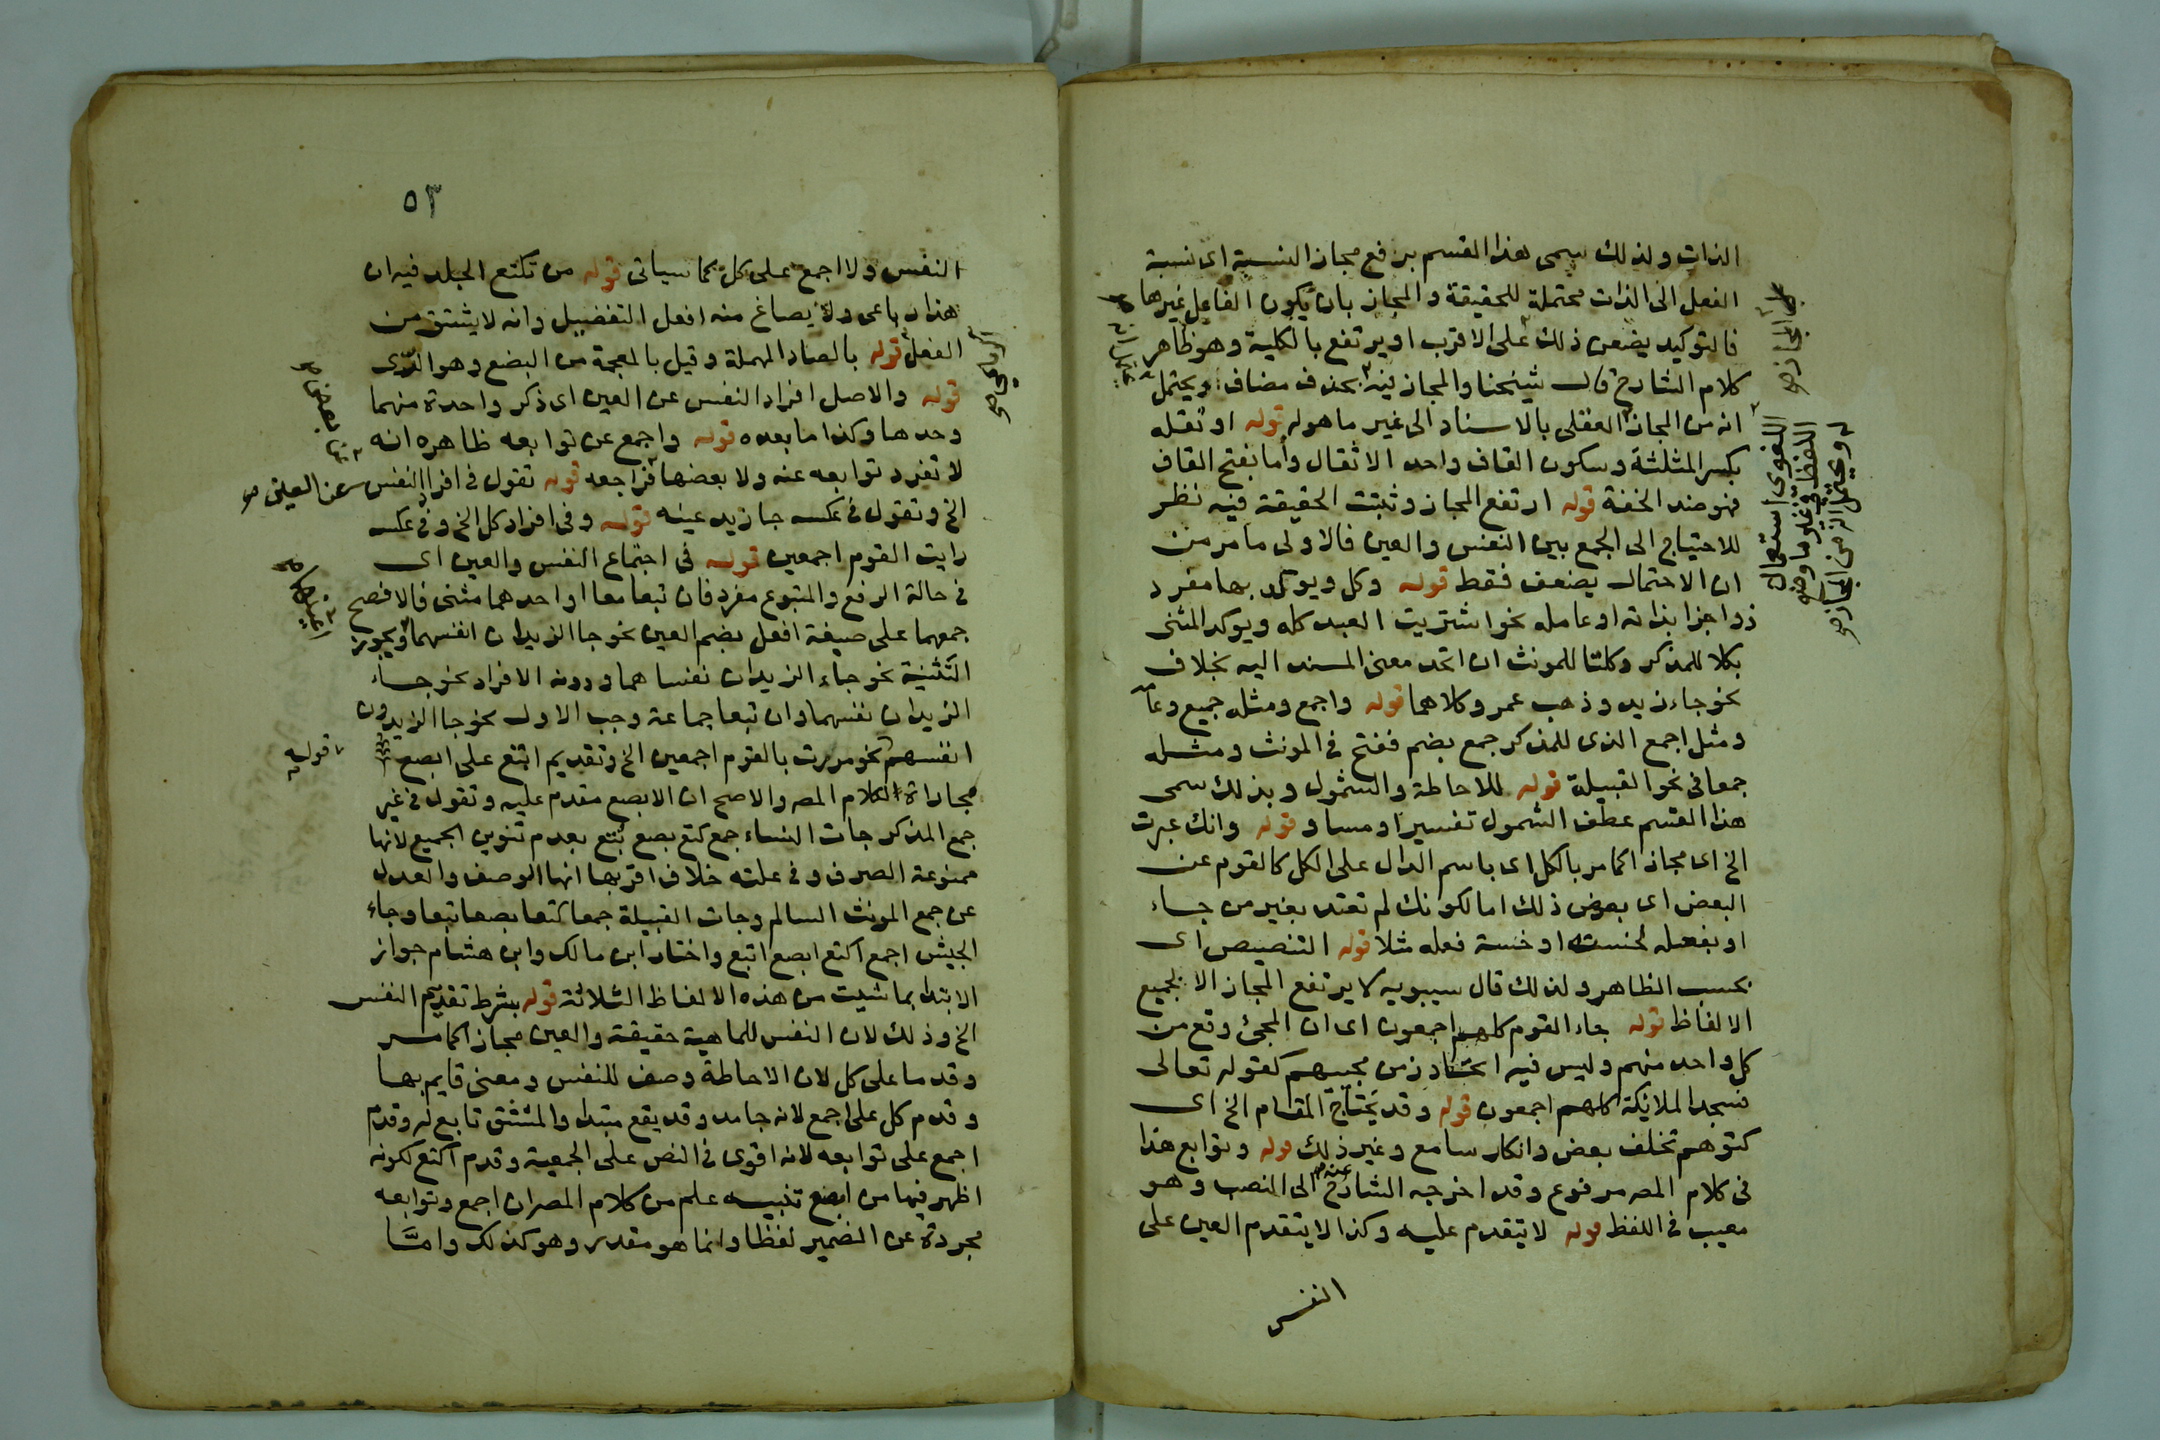 الذات ولذلك سمى هذا القسم برفع مجاز النسبة اى نسبة
الفعل الى الذات محتملة للحقيقة والمجاز بان يكون الفاعل غيرها
فالتوكيد يضعف ذلك على الاقرب او يرتفع بالكلية وهو ظاهر
كلام الشارح قال شيخنا والمجاز فيه بحذف مضاف ويحتمل
انه من المجاز العقلى بالاسناد الى غير ما هو له قوله او ثقله
بكسر المثلثة وسكون القاف واحد الاثقال وأما بفتح القاف
فهو ضد الخفة قوله ارتفع المجاز وثبتت الحقيقة فيه نظر
للاحتياج الى الجمع بين النفس والعين فالاولى ما مر من
ان الاحتمال يضعف فقط قوله وكل ويوكد بها مفرد
ذو اجزا بذاته او عامله نحو اشتريت العبد كله ويوكد المثنى
بكلا للمذكر وكلتا للمونث ان اتحد معنى المسند اليه بخلاف
نحو جاء زيد وذهب عمر وكلاهما قوله واجمع ومثله جميع وعامة
ومثل اجمع الذى للمذكر جمع بضم ففتح فى المونث ومثله
جمعا فى نحو القبيلة قوله للاحاطة والشمول وبذلك سمى
هذا القسم عطف الشمول تفسير او مساو قوله وانك عبرت
الخ اى مجازا كما مر بالكل اى باسم الدال على الكل كالقوم عن
البعض اى بعوض ذلك اما لكونك لم تعتد بغير من جاء
او بفعله لخسته او خسة فعله مثلا قوله التنصيص اى
بحسب الظاهر ولذلك قال سيبويه لا يرتفع المجاز الا بجميع
الالفاظ قوله جاء القوم كلهم اجمعون اى ان المجئ وقع من
كل واحد منهم وليس فيه اتحاد زمن مجيهم كقوله تعالى
فسجد الملايكة كلهم اجمعون قوله وقد يحتاج المقام الخ اى
كتوهم تخلف بعض وانكار سامع وغير ذلك قوله وتوابع هذا
فى كلام المصـ مرفوع وقد اخرجه الشارح عنه الى النصب وهو
معيب فى اللفظ قوله لا يتقدم عليه وكذا لا يتقدم العين على
النفس
اللغوى استعمال
اللفظ فى غير ما وضع
ويحتمل انه من المجاز صح
٥٣
النفس ولا اجمع على كل كما سياتى قوله من تكتع الجلد فيه ان
هذا رباعى ولا يصاغ منه افعل التفضيل وانه لا يشتق من
الفعل قوله بالصاد المهملة وقيل بالمعجمة من البضع وهو الرّى
قوله والاصل افراد النفس عن العين اى ذكر واحدة منهما
وحدها وكذا ما بعده قوله واجمع عن توابعه ظاهره انه
لا تفرد توابعه عنه ولا بعضها فراجعه قوله تقول فى افراد النفس عن العين صح
الخ وتقول فى عكسه جا زيد عينه قوله وفى افراد كل الخ وفى عكسه
رايت القوم اجمعين قوله فى اجتماع النفس والعين اى
فى حالة الرفع والمتبوع مفرد فان تبعا معا او احدهما مثنى فالافصح
جمعهما على صيغة افعل بضم العين نحو جا الزيدان انفسهما ويجوز
التثنية نحو جاء الزيدان نفساهما ودونه الافراد نحو جاء
الزيدان نفسهما وان تبعا جماعة وجب الاول نحو جا الزيدون
انفسهم نحو مررت بالقوم اجمعين الخ وتقديم اتبع على ابصع
مجاراة لكلام المصـ والاصح ان الابصع مقدم عليه وتقول فى غير
جمع المذكر جات النساء جمع كتع بصع بتع بعدم تنوين الجميع لانها
ممنوعة الصرف وفى علته خلاف اقربها انها الوصف والعدل
عن جمع المونث السالم وجات القبيلة جمعا كتعا بصعا بتعا وجاء
الجيش اجمع اكتع ابصع ابتع واختار ابن مالك وابن هشام جواز
الابتدا بما شيت من هذه الالفاظ الثلاثة قوله بشرط تقديم النفس
الخ وذلك لان النفس للماهية حقيقة والعين مجازا كما مر
وقدما على كل لان الاحاطة وصف للنفس ومعنى قايم بها
وقدم كل على اجمع لانه جامد وقد يقع مبتدا والمشتق تابع له وقدم
اجمع على توابعه لانه اقوى فى النص على الجمعية وقدم اكتع لكونه
اظهر فيها من ابصع تنبيه علم من كلام المصـ ان اجمع وتوابعه
مجردة عن الضمير لفظا وانما هو مقدر وهو كذلك وامّا
قوله